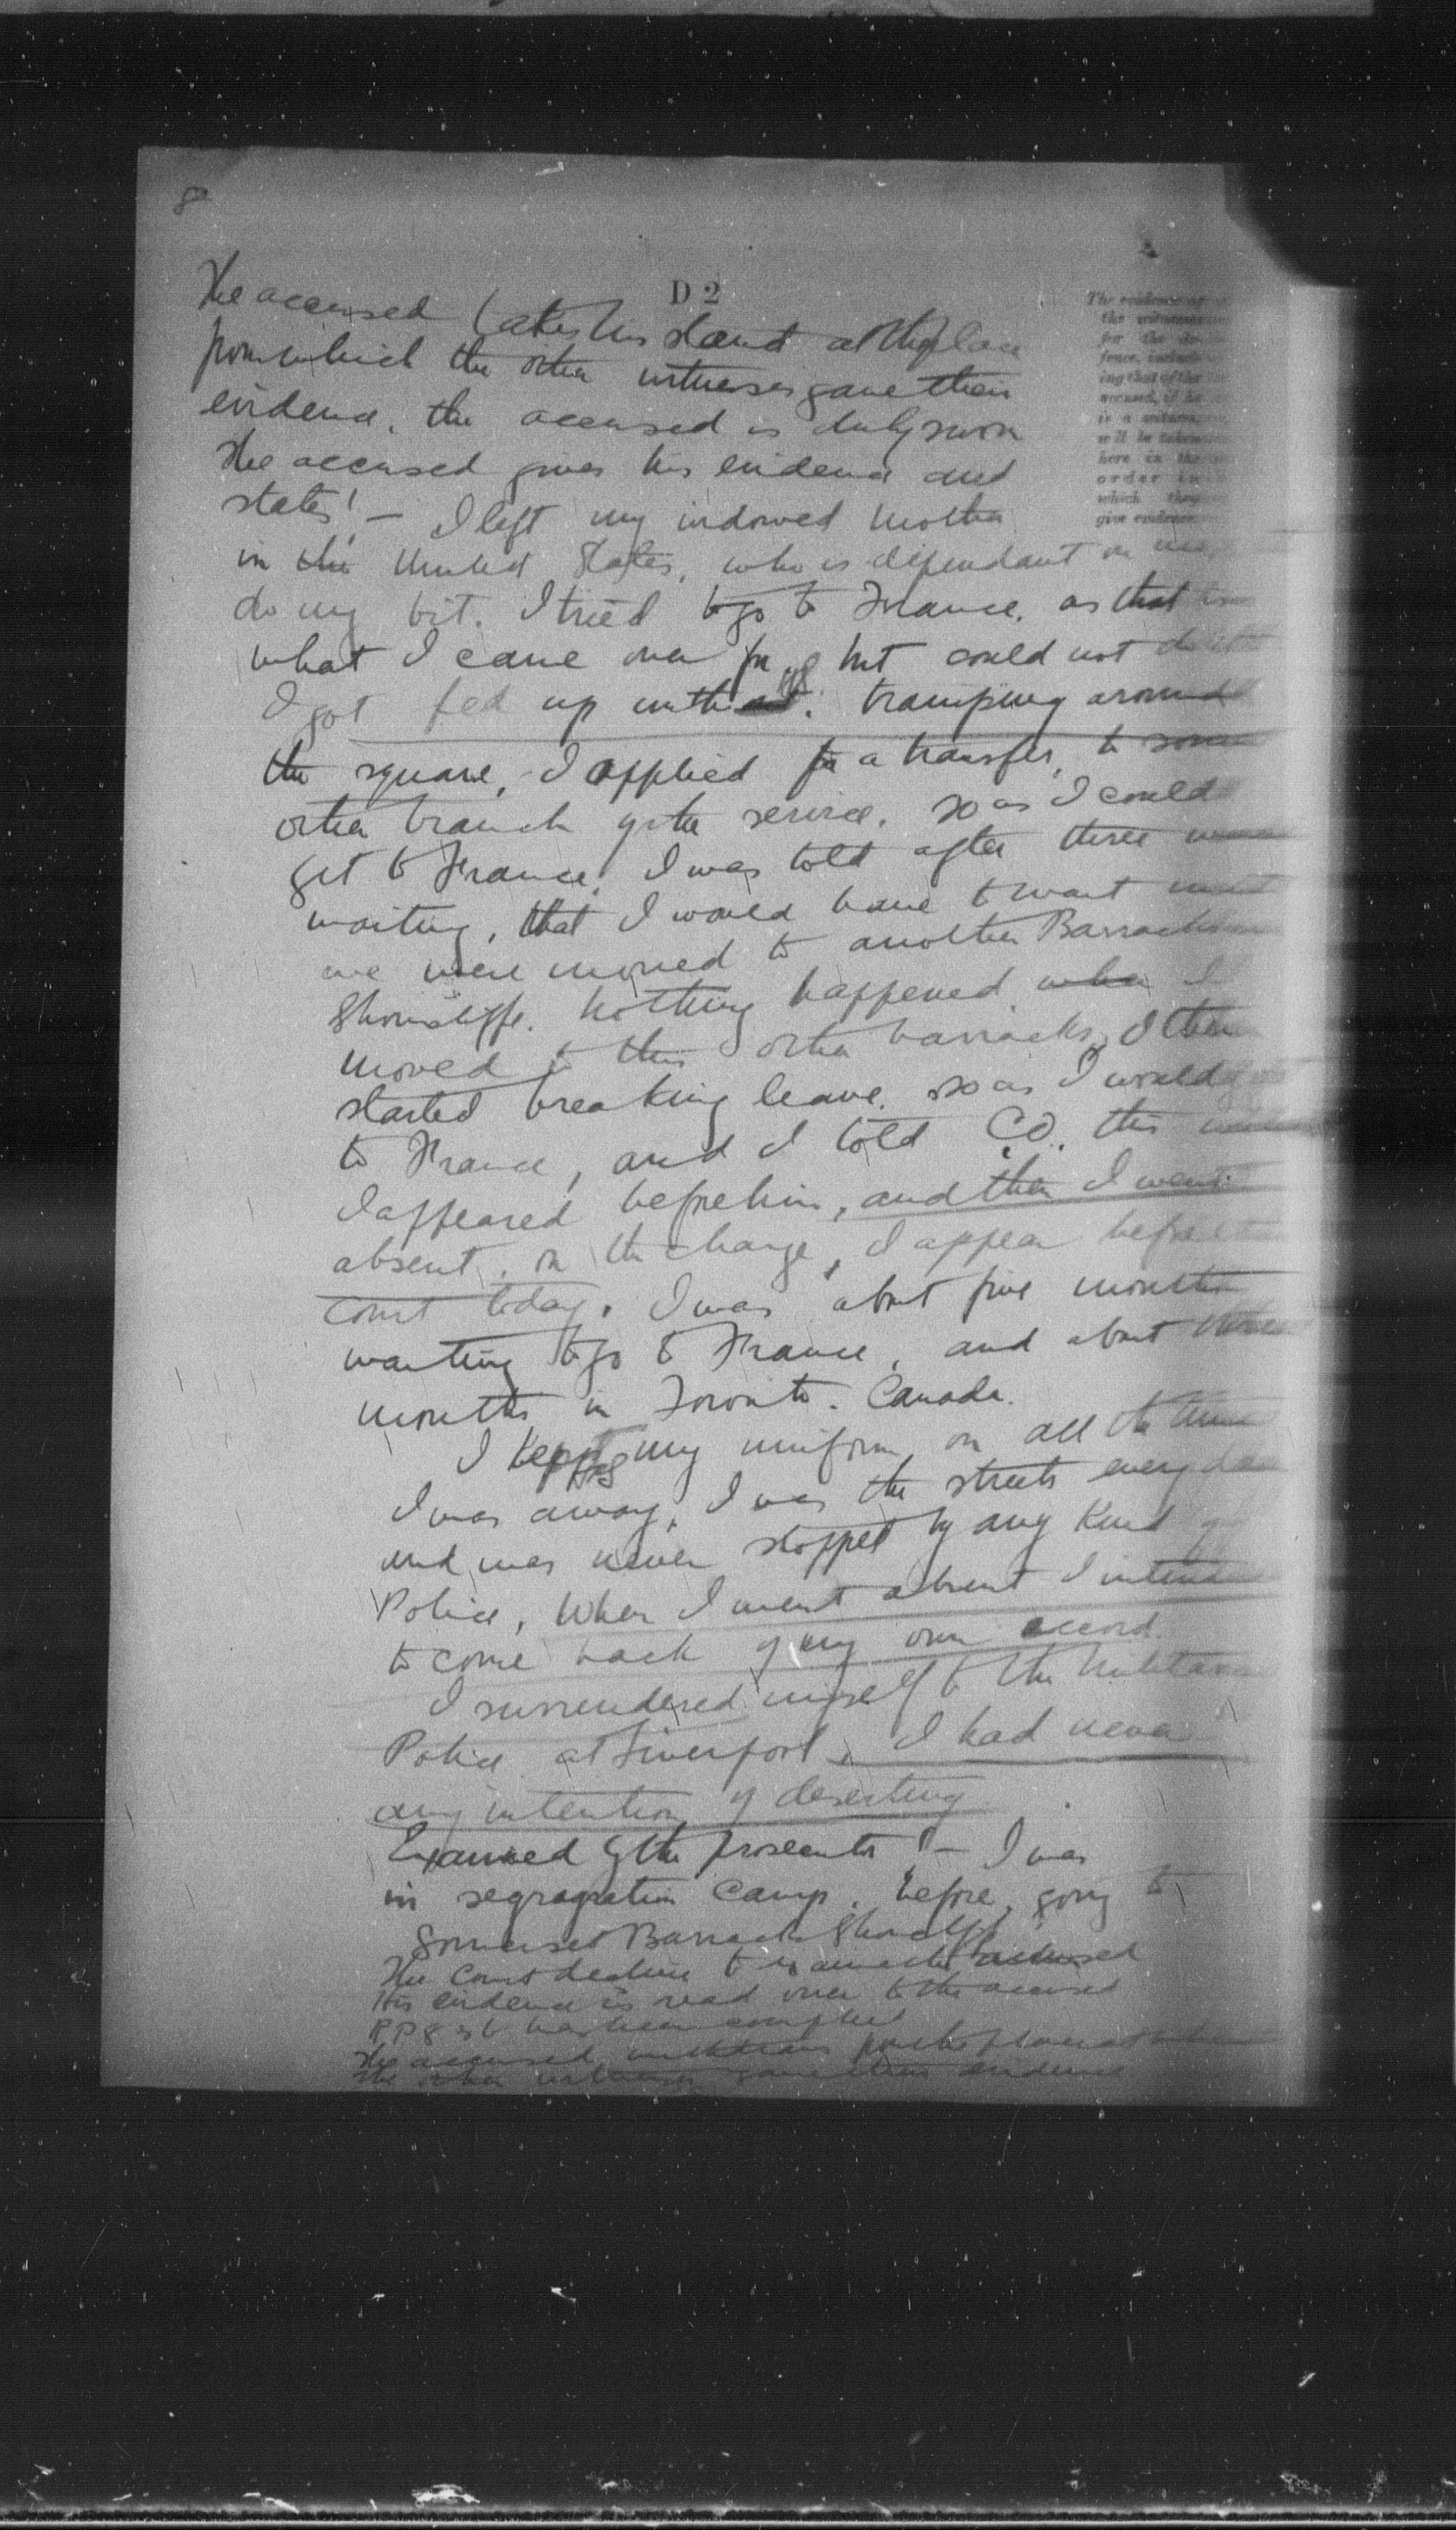 D 2
The evidence of
the witnesses
for the de-
fence, includ-
ing that of the
accused, if he
is a witness,
will be taken
here in the
order in
which they
give evidence.
The accused takes his stand at the place
from which the other witnesses gave their
evidence. the accused is duly sworn
The accused gives his evidence and
states! — I left my widowed mother
in the United States, who is dependant on me,
do my bit. I tried to go to France, as that
what I came over for, but could not do it
I got fed up with tramping around
the square, I applied for a transfer, to some
other branch of the service, so as I could
get to France. I was told after three
waiting, that I would have to wait until
we were moved to another Barracks
Shorncliffe. Nothing happened when I
moved to this other barracks, I then
started breaking leave, so as I would
to France, and I told C.O. this
I appeared before him, and then I went
absent, on the charge, I appear before
Court today. I was about five months
waiting to go to France, and about three
months in Toronto. Canada.
I kept my uniform on all the time
I was away, I was the streets every day
and was never stopped by any kind of
Police, When I went absent I intended
to come back of my own accord.
I surrendered myself to the Military
Police at Liverpool, I had never
any intention of deserting
Examined by the prosecutor! — I was
in segragation Camp, before going to
Somerset Barracks Shorncliffe
The Court decline to examine the accused
His evidence is read over to the accused
R P 83 b has been complied
The accused withdraws from the place at
the other witnesses gave their evidence